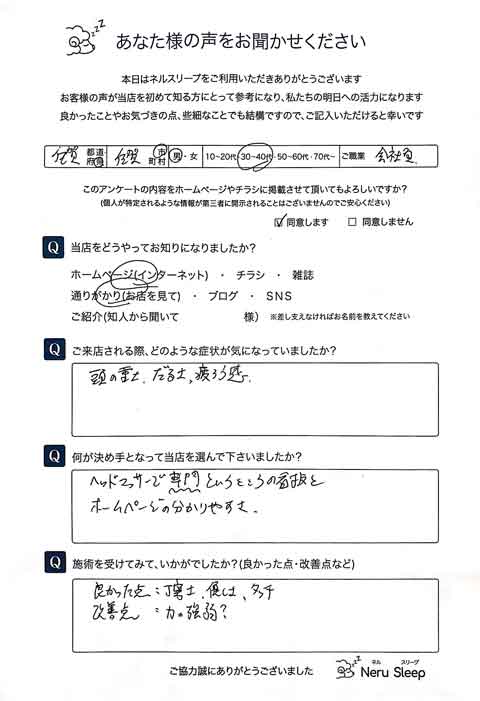 あなた様の声をお聞かせください
本日はネルスリープをご利用いただきありがとうございます
お客様の声が当店を初めて知る方にとって参考になり、私たちの明日への活力になります
良かったことやお気づきの点、些細なことでも結構ですので、ご記入いただけると幸いです
佐賀 都道府県 佐賀 市町村 男・女 10~20代・30~40代・50~60代・70代~ ご職業 会社員
このアンケートの内容をホームページやチラシに掲載させて頂いてもよろしいですか?
(個人が特定されるような情報が第三者に開示されることはございませんのでご安心ください)
☑ 同意します □ 同意しません
Q 当店をどうやってお知りになりましたか?
ホームページ(インターネット) ・ チラシ ・ 雑誌
通りがかり(お店を見て) ・ ブログ ・ SNS
ご紹介(知人から聞いて 様) ※差し支えなければお名前を教えてください
Q ご来店される際、どのような症状が気になっていましたか?
頭の重さ、だるさ、疲ろう感。
Q 何が決め手となって当店を選んで下さいましたか?
ヘッドマッサージ専門というところの看板と
ホームページの分かりやすさ。
Q 施術を受けてみて、いかがでしたか?(良かった点・改善点など)
良かった点:丁寧さ、優しさ、タッチ
改善点:力の強弱?
ご協力誠にありがとうございました
ネル スリープ
Neru Sleep